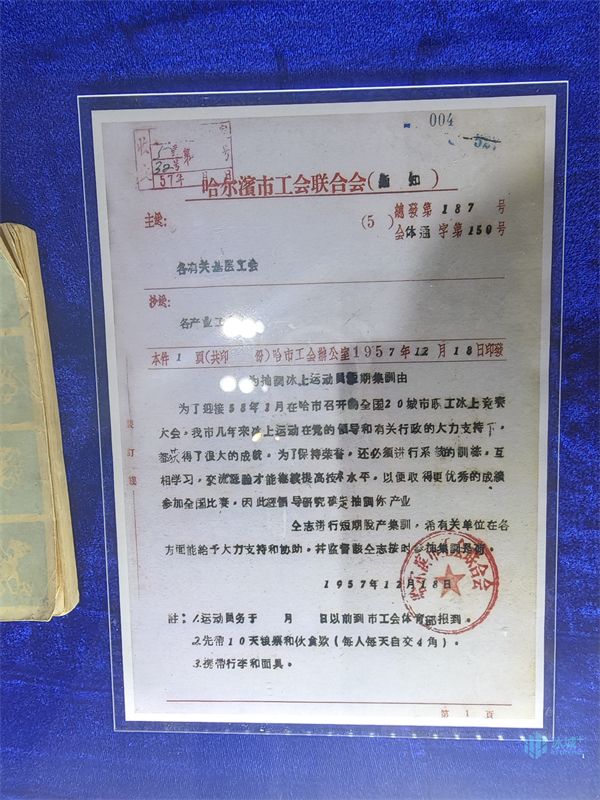 004
327
收
第 号
32号
57年 月 日
哈尔濱市工会联合会(通知)
主送:
(5)總發第187号
会体通字第150号
各有关基层工会
抄送:
各产业工
本件1頁(共印 份)哈市工会辦公室1957年12月18日印發
为抽調冰上运动員短期集訓由
为了迎接58年1月在哈市召开的全国20城市职工冰上竞赛
大会,我市几年来冰上运动在党的领导和有关行政的大力支持下,
都获得了很大的成績,为了保持荣誉,还必须进行系統的訓練,互
相学习,交流經驗才能继续提高技术水平,以便取得更优秀的成績
参加全国比賽,因此經領导研究确定抽調你产业
仝志进行短期脫产集訓,希有关单位在各
方面能給予大力支持和协助,并监督該仝志按时参加集訓是荷。
1957年12月18日
哈尔滨市工会联合会
註:1.运动員务于 月 日以前到市工会体育部报到。
2.先帶10天粮票和伙食款(每人每天自交4角)
3.携帶行李和面具。
裝訂綫
第1頁